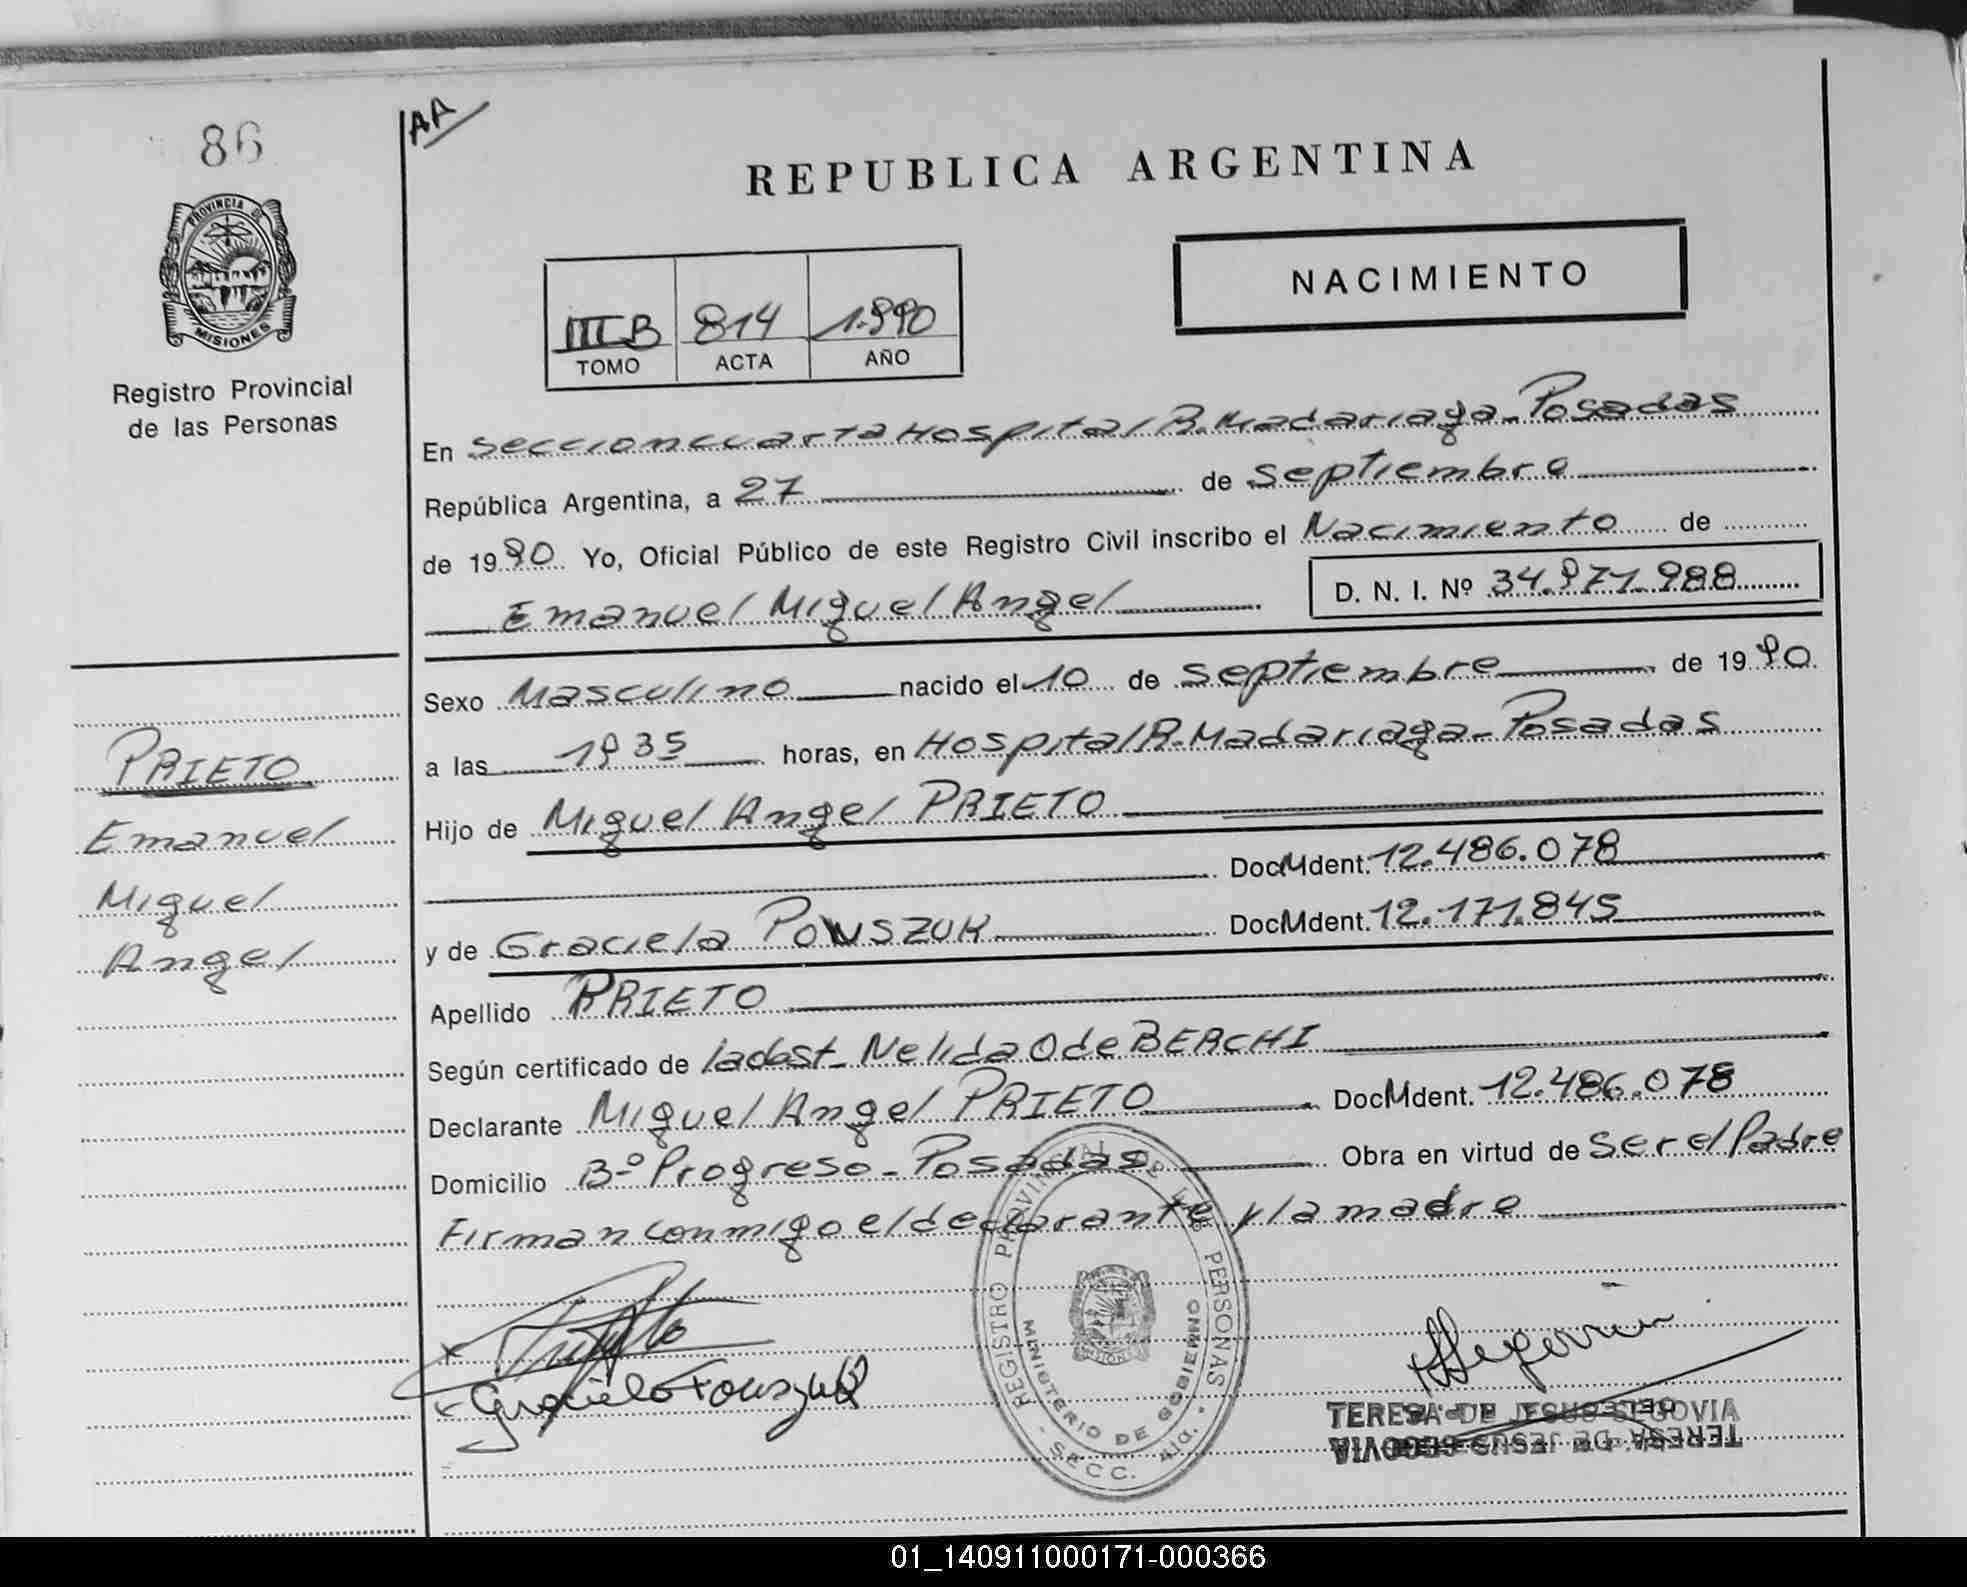 86
AA
PROVINCIA DE
MISIONES
Registro Provincial
de las Personas
REPUBLICA ARGENTINA
NACIMIENTO
III B 814 1.990
TOMO ACTA AÑO
En Seccion cuarta Hospital R. Madariaga - Posadas
República Argentina, a 27 de Septiembre
de 1990 Yo, Oficial Público de este Registro Civil inscribo el Nacimiento de
Emanuel Miguel Angel D. N. I. Nº 34.971.988
Sexo Masculino nacido el 10 de Septiembre de 1990
a las 1935 horas, en Hospital R. Madariaga - Posadas
Hijo de Miguel Angel PRIETO
Doc M Ident. 12.486.078
y de Graciela POWSZUK Doc M Ident. 12.171.845
Apellido PRIETO
Según certificado de la obst. Nelida O de BERCHI
Declarante Miguel Angel PRIETO Doc M Ident. 12.486.078
Domicilio Bº Progreso - Posadas Obra en virtud de Ser el Padre
Firman conmigo el declarante y la madre
PRIETO
Emanuel
Miguel
Angel
REGISTRO PROVINCIAL DE LAS PERSONAS
MINISTERIO DE GOBIERNO
MISIONES
SECC. 4ta.
TERESA DE JESUS SEGOVIA
TERESA DE JESUS SEGOVIA
01_140911000171-000366